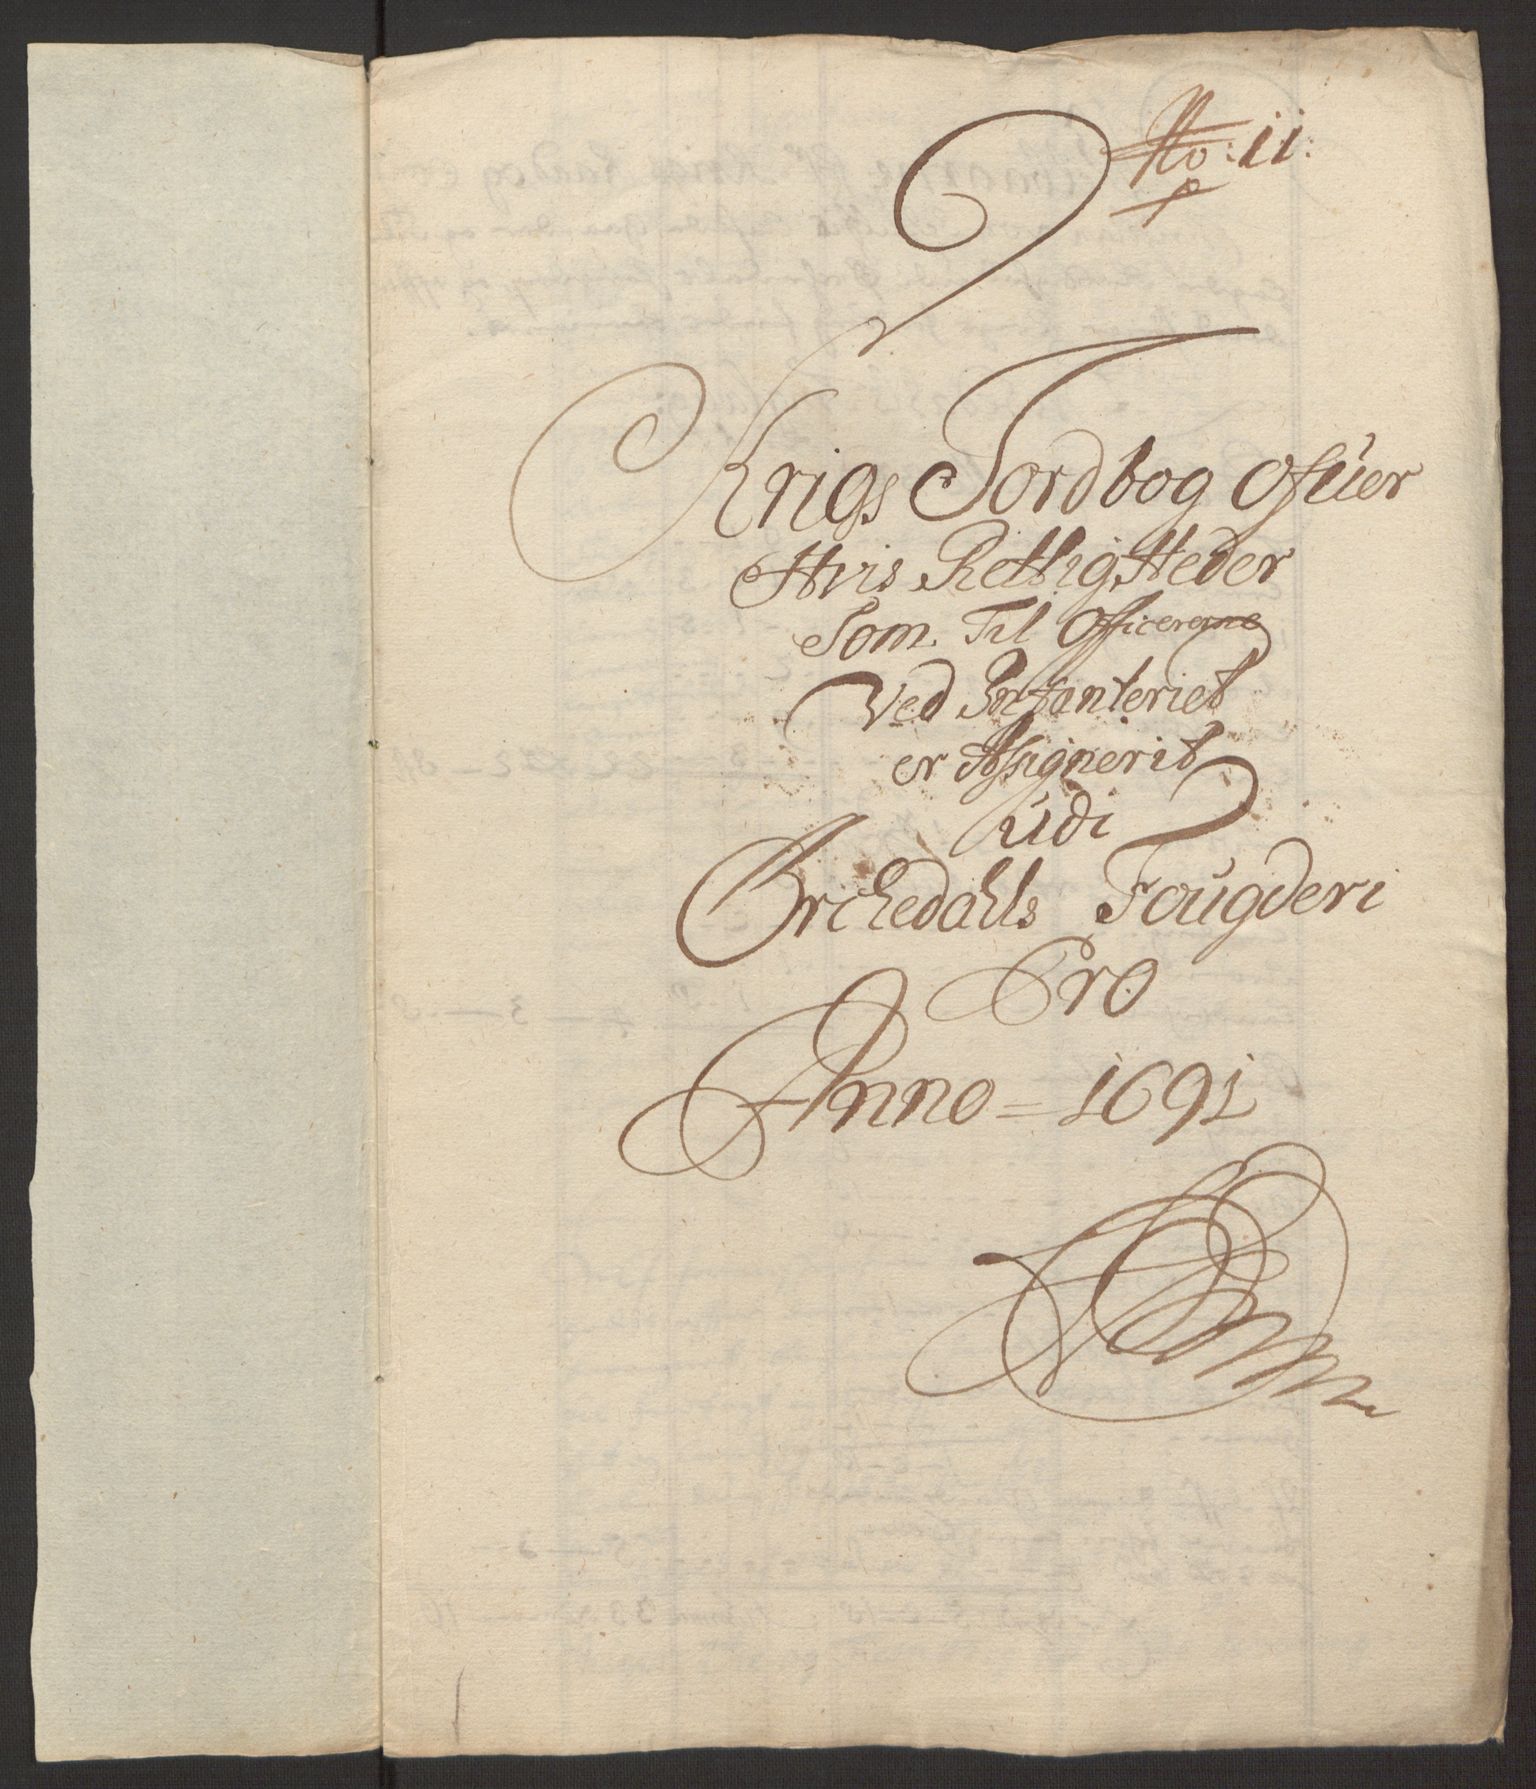 No: 11:
Krigs Jordbog Ofuer
Hvis Rettig Heder
Som Til Officererne
Ved Infanteriet
er Assignerit
udi
Orchedahls Fougderi
Pro
Anno = 1691